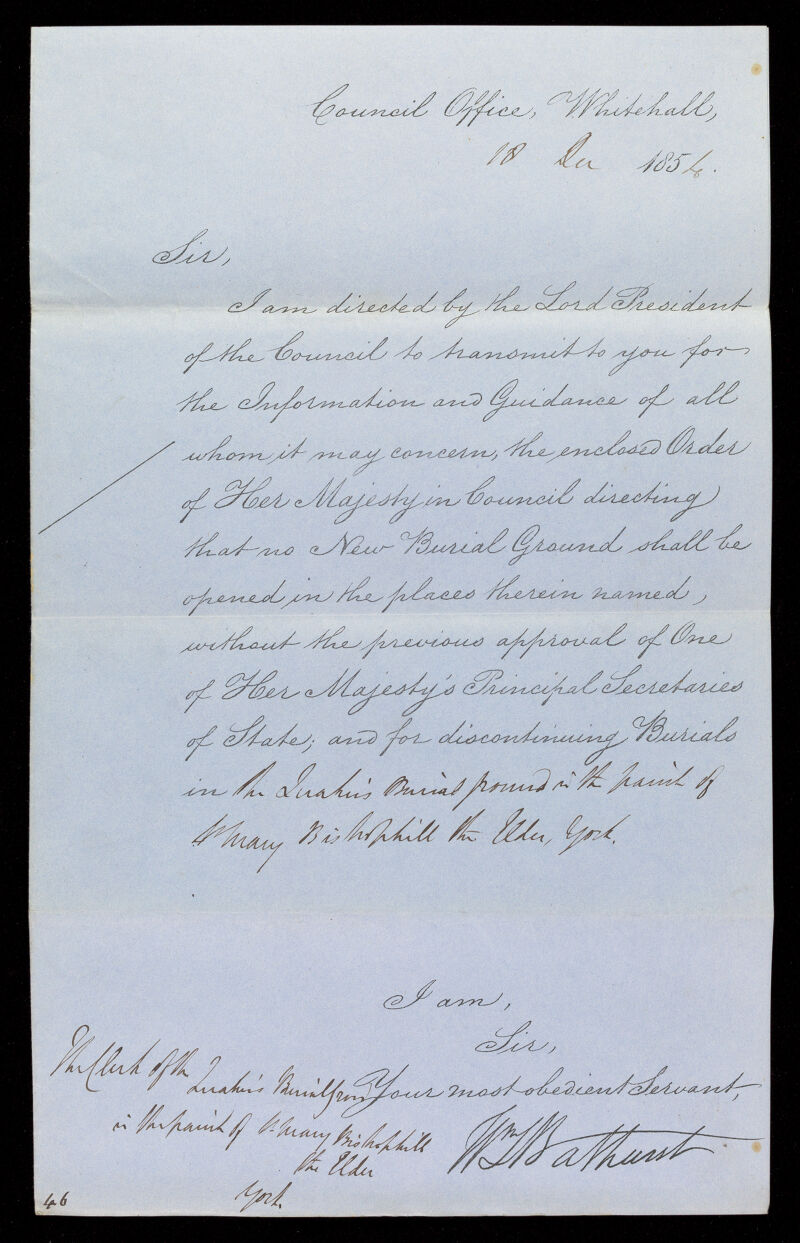 Council Office, Whitehall,
18 Dec 1854.
Sir,
I am directed by the Lord President
of the Council to transmit to you for
the Information and Guidance of all
whom it may concern, the enclosed Order
of Her Majesty in Council directing
that no New Burial Ground shall be
opened in the places therein named,
without the previous approval of One
of Her Majesty's Principal Secretaries
of State; and for discontinuing Burials
in the Quakers Burial ground in the parish of
St Mary Bishophill the Elder, York.
I am,
Sir,
Your most obedient Servant,
Wm L Bathurst
The Clerk of the
Quakers Burial ground
in the parish of St Mary Bishophill
the Elder
York.
46